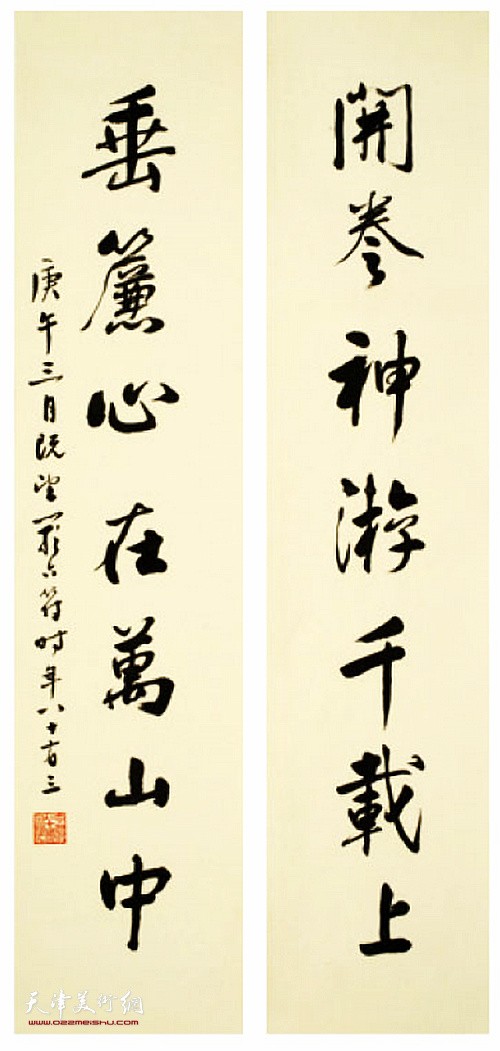 開卷神游千載上
垂簾心在萬山中
庚午三月既望嚴六符時年八十有三
天津美術網
www.022meishu.com